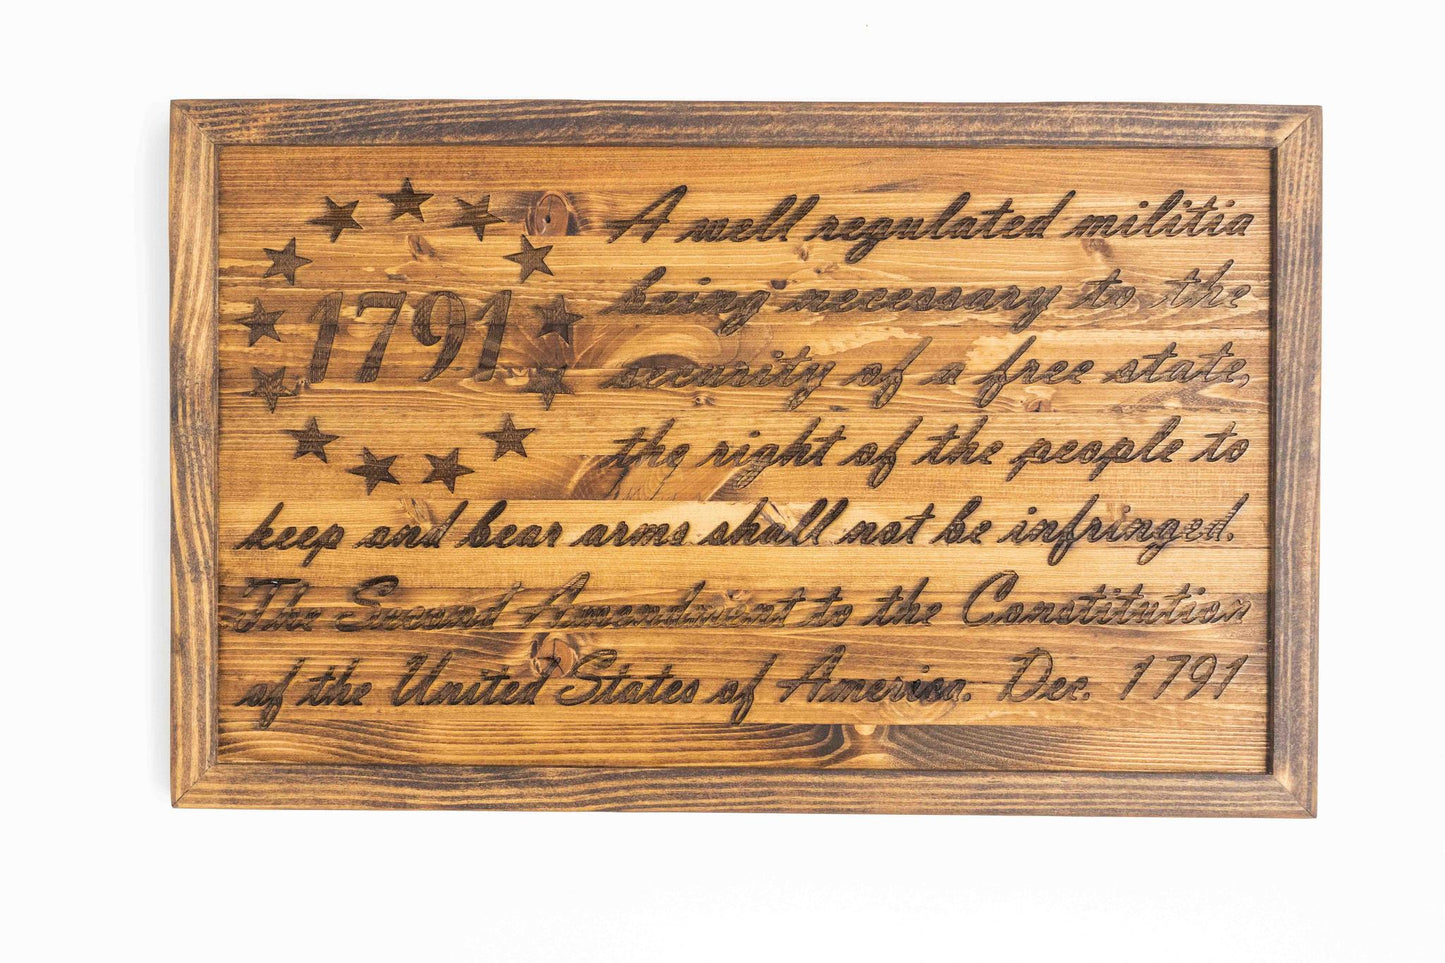 1791
A well regulated militia
being necessary to the
security of a free state,
the right of the people to
keep and bear arms shall not be infringed.
The Second Amendment to the Constitution
of the United States of America. Dec. 1791